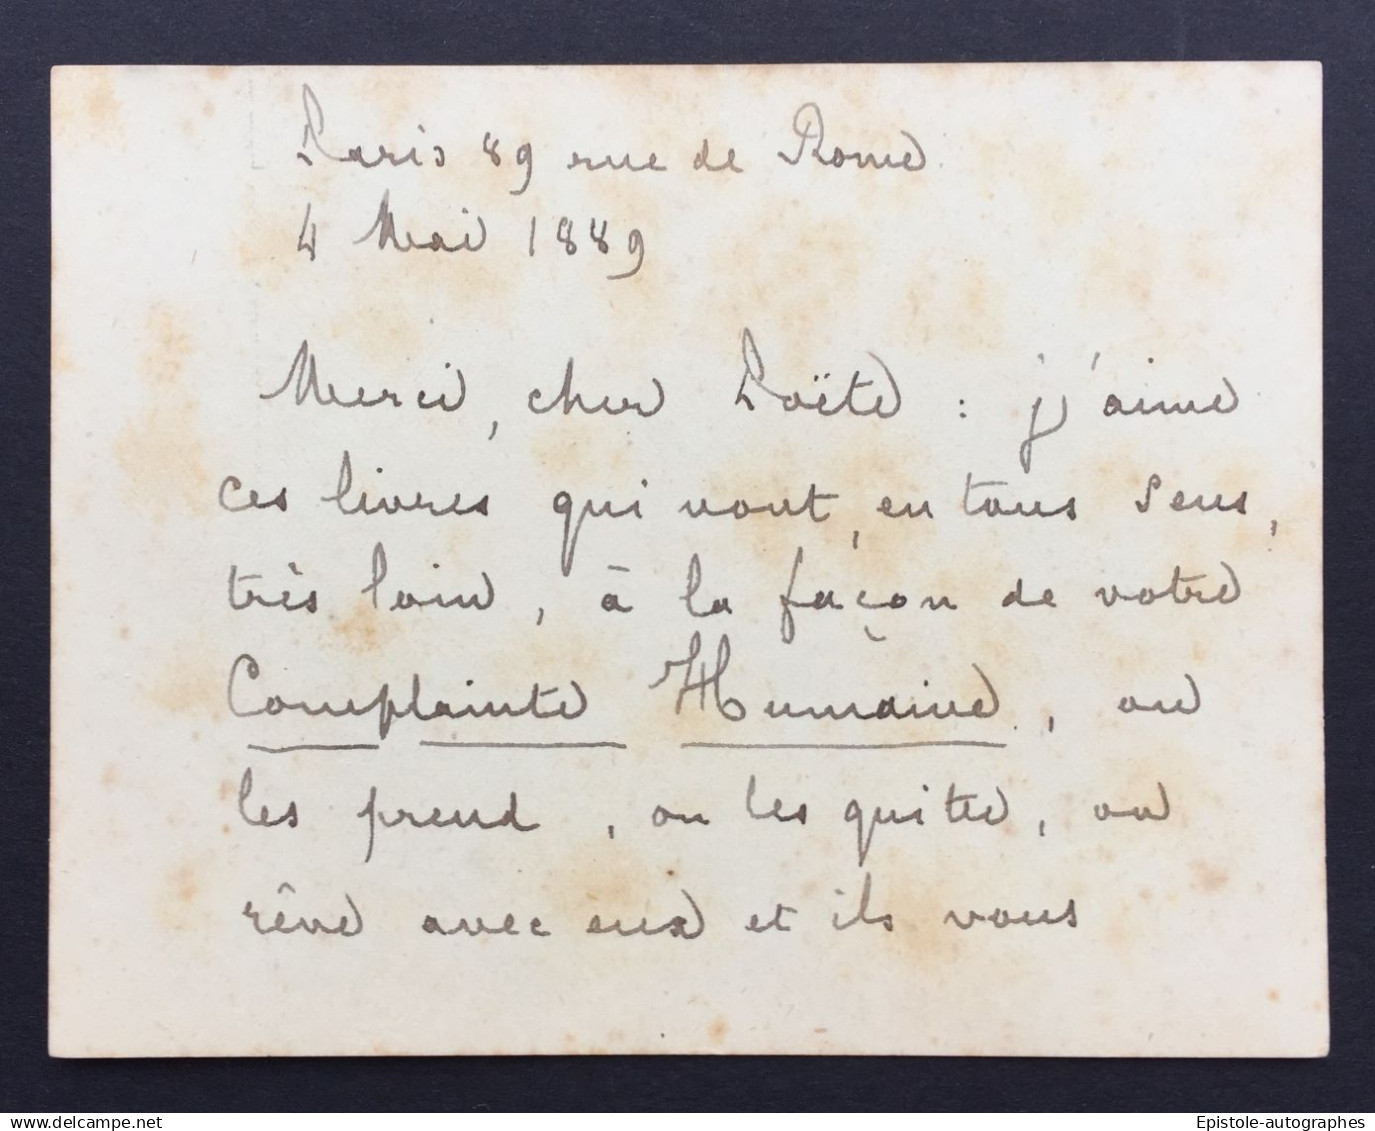 Paris 89 rue de Rome
4 Mai 1889
Merci, cher Poëte : j'aime
ces livres qui vont, en tous sens,
très loin, à la façon de votre
Complainte Humaine, on
les prend, on les quitte, on
rêve avec eux et ils vous
Epistole-autographes